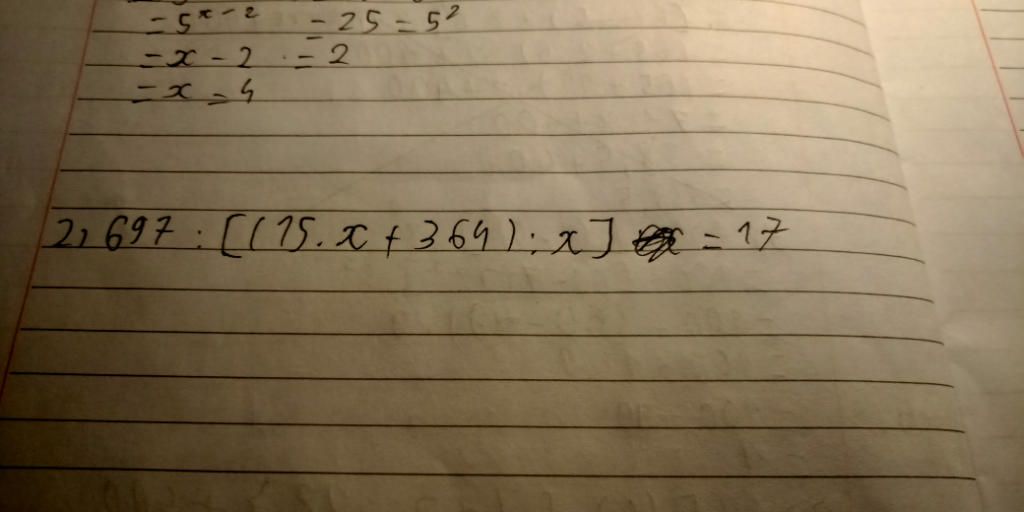 = 5^x-2 = 25 = 5^2
= x - 2 = 2
= x = 4
2, 697 : [(15.x + 364) : x] = 17